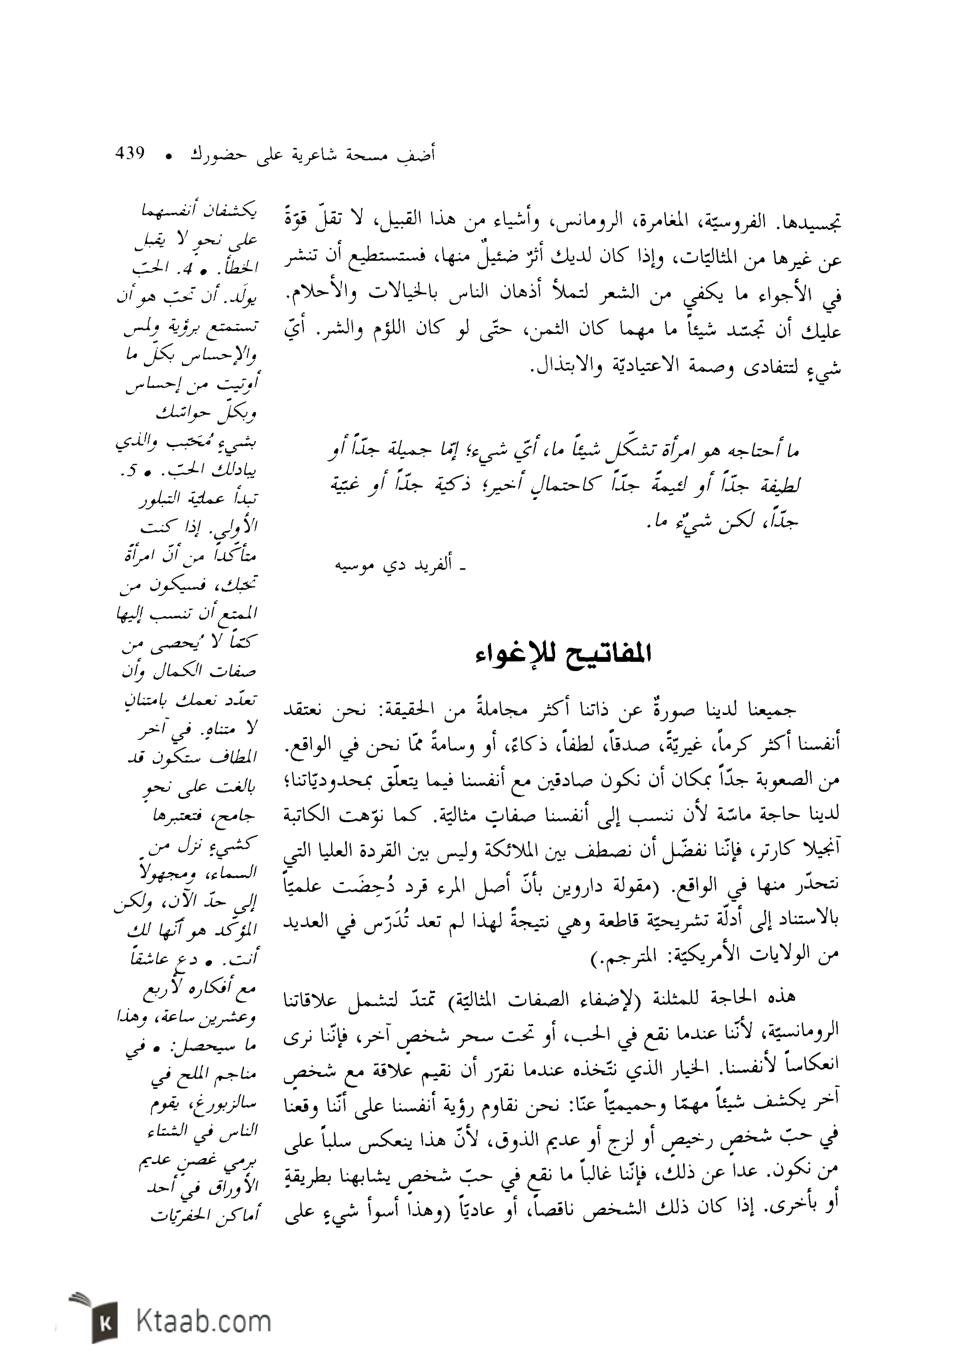 أضفِ مسحة شاعرية على حضورك • 439
تجسيدها. الفروسيّة، المغامرة، الرومانس، وأشياء من هذا القبيل، لا تقلّ قوّةً
عن غيرها من المثاليّات، وإذا كان لديك أثرٌ ضئيلٌ منها، فستستطيع أن تنشر
في الأجواء ما يكفي من الشعر لتملأ أذهان الناس بالخيالات والأحلام.
عليك أن تجسّد شيئاً ما مهما كان الثمن، حتّى لو كان اللؤم والشر. أيّ
شيءٍ لتتفادى وصمة الاعتياديّة والابتذال.
ما أحتاجه هو امرأة تشكّل شيئاً ما، أيّ شيء؛ إمّا جميلة جدّاً أو
لطيفة جدّاً أو لئيمةً جدّاً كاحتمالٍ أخير؛ ذكيّة جدّاً أو غبيّة
جدّاً، لكن شيءٌ ما.
ـ ألفريد دي موسيه
المفاتيح للإغواء
جميعنا لدينا صورةٌ عن ذاتنا أكثر مجاملةً من الحقيقة: نحن نعتقد
أنفسنا أكثر كرماً، غيريّةً، صدقاً، لطفاً، ذكاءً، أو وسامةً ممّا نحن في الواقع.
من الصعوبة جدّاً بمكان أن نكون صادقين مع أنفسنا فيما يتعلّق بمحدوديّاتنا؛
لدينا حاجة ماسّة لأن ننسب إلى أنفسنا صفاتٍ مثاليّة. كما نوّهت الكاتبة
آنجيلا كارتر، فإنّنا نفضّل أن نصطف بين الملائكة وليس بين القردة العليا التي
نتحدّر منها في الواقع. (مقولة داروين بأنّ أصل المرء قرد دُحِضَت علميّاً
بالاستناد إلى أدلّة تشريحيّة قاطعة وهي نتيجةً لهذا لم تعد تُدَرّس في العديد
من الولايات الأمريكيّة: المترجم.)
هذه الحاجة للمثلنة (لإضفاء الصفات المثاليّة) تمتدّ لتشمل علاقاتنا
الرومانسيّة، لأنّنا عندما نقع في الحب، أو تحت سحر شخصٍ آخر، فإنّنا نرى
انعكاساً لأنفسنا. الخيار الذي نتّخذه عندما نقرّر أن نقيم علاقة مع شخصٍ
آخر يكشف شيئاً مهمّا وحميميّاً عنّا: نحن نقاوم رؤية أنفسنا على أنّنا وقعنا
في حبّ شخصٍ رخيصٍ أو لزج أو عديم الذوق، لأنّ هذا ينعكس سلباً على
من نكون. عدا عن ذلك، فإنّنا غالباً ما نقع في حبّ شخصٍ يشابهنا بطريقةٍ
أو بأخرى. إذا كان ذلك الشخص ناقصاً، أو عاديّاً (وهذا أسوأ شيءٍ على
يكشفان أنفسهما
على نحوٍ لا يقبل
الخطأ. • 4. الحبّ
يولَد. أن تحبّ هو أن
تستمتع برؤية ولمس
والإحساس بكلّ ما
أوتيت من إحساس
وبكلّ حواسّك
بشيءٍ مُحَبّب والذي
يبادلك الحبّ. • 5.
تبدأ عمليّة التبلور
الأولى. إذا كنت
متأكّداً من أنّ امرأةً
تحبّك، فسيكون من
الممتع أن تنسب إليها
كمّاً لا يُحصى من
صفات الكمال وأن
تعدّد نعمك بامتنانٍ
لا متناهٍ. في آخر
المطاف ستكون قد
بالغت على نحوٍ
جامح، فتعتبرها
كشيءٍ نزل من
السماء، ومجهولاً
إلى حدّ الآن، ولكن
المؤكّد هو أنّها لك
أنت. • دع عاشقاً
مع أفكاره لأربع
وعشرين ساعة، وهذا
ما سيحصل: • في
مناجم الملح في
سالزبورغ، يقوم
الناس في الشتاء
برمي غصنٍ عديم
الأوراق في أحد
أماكن الحفريّات
Ktaab.com